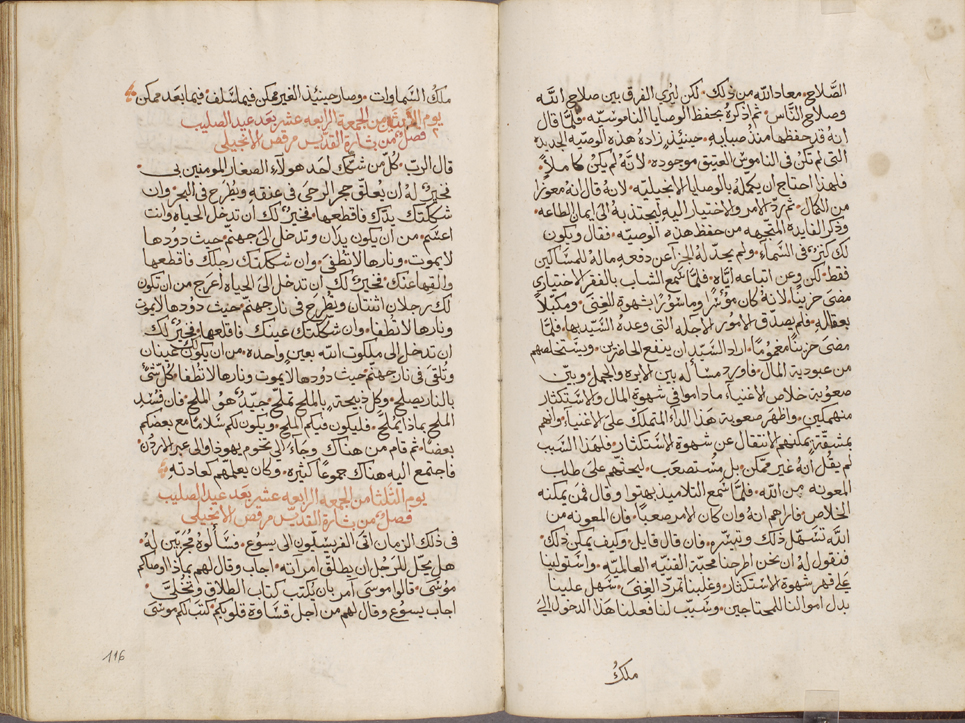 الصّلاح. معاد الله من ذلك. لكن ليُري الفرق بين صلاح الله
وصلاح النّاس. ثم اذكره بحفظ الوصايا الناموسيّه. فلمّا قال
انه قد حفظها منذ صباه. حينئذ زاده هذه الوصيّه الجديده
التى لم تكن فى الناموس العتيق موجوده. لانّه لم يكن كاملاً.
فلهذا احتاج ان يكمّله بالوصايا الانجيليّه. لانه قال انه معوزا
من الكمال. ثم ردّ الامر والاختيار اليه ليجتذبه الى ايمان الطاعه.
وذكر الفايده المتّجهه من حفظ هذه الوصيّه. فقال ويكون
لك كنز فى السّماء. ولم يحدّ له الجزآ عن دفعه ماله للمساكين
فقط. لكن وعن اتباعه ايّاه. فلمّا سمع الشاب بالفقر الاختياري
مضى حزينًا. لانه كان مؤثرًا وماسُورًا بشهوة الغِنى. ومكبّلاً
بعقاله. فلم يصدّق الامور الاجله التى وعده السّيّد بها. فلمّا
مضى حزينًا مغمومًا. اراد السّيّد ان ينفع الحاضرين. ويستخلصهم
من عبودية المال. فاورد مسأله بين الابره والجمل. وبيّن
صعوبة خلاص الاغنيآء ماداموا فى شهوة المال والاستكثار
منهمكين. واظهر صعوبة هذا الدآء المتملك على الاغنيآء. وانهم
بمشقةٍ يمكنهم الانتقال عن شهوة الاستكثار. فلهذا السّبب
لم يقُل انهُ غير ممكن. بل مُستصعَب. ليحثهم على طلب
المعونه من الله. فلمّا سمع التلاميذ بهتوا وقال فمن يمكنه
الخلاص. فاراهم انه وان كان الامر صعبًا. فان المعونه من
الله تسهّل ذلك وتيسّره. فان قال قايل. وكيف يمكن ذلك.
فنقول له ان نحن اطرحنا محبّة القنيه العالميّه. واستولينا
على قهر شهوة الاستكثار. وغلبنا تمرّد الغِنى. سَهل علينا
بذل اموالنا للمحتاجين. وسَبّب لنا فعلنا هذا الدخول الى
ملكُ
ملكُ السّماوات. وصار حينئذ الغير ممكن فيما سَلف. فيما بَعد ممكن
يوم الاثنين من الجمعة الرابعه عشر بَعد عيد الصليب
فصلٌ من بشارة القدّيس مرقص الانجيلى
قال الربّ. كلّ من شكّك احَد هولآء الصغار المومنين بى.
فخيرٌ لهُ ان يُعلّق حجر الرحَى فى عنقه ويُطرَح فى البحر. وان
شككتك يدك فاقطعها. فخيرٌ لك ان تدخل الى الحياه وانت
اعسَم. من ان يكون يدَان وتدخل الى جهنّم. حيث دُودها
لا يموت. ونارها لا تطفى. وان شككتك رجلك فاقطعها
والقيها عنك. فخيرٌ لك ان تدخل الى الحياه اعرَج من ان تكون
لك رجلان اثنتان وتطرَح فى نار جهنّم. حيث دودها لا يموت
ونارها لا تطفا. وان شككتك عينك فاقلعها. فخيرٌ لك
ان تدخل الى ملكوت الله بعين واحده. من ان يكون عينان
وتلقى فى نار جهنّم. حيث دودها لا يموت ونارها لا تطفا. كلّ شىٍ
بالنار يصلح. وكل ذبيحة بالملح تملّح. جيّدٌ هو الملح. فان فسَد
الملح بماذا يُملّح. فليكون فيكم الملح. ويكون لكم سَلامًا مع بعضكم
بعضًا. ثم قام من هناك وجآء الى تخوم يهوذا والى عبر الاردن.
فاجتمع اليه هناك جموعًا كثيره. وكان يعلّمهم كعادته
يوم الثلثا من الجمعة الرابعه عشر بَعد عيد الصليب
فصلٌ من بشارة القديّس مرقص الانجيلى
فى ذلك الزمان اتى الفريسيّون الى يسوع. فسَألوهُ مُجرّبين لهُ.
هل يحلّ للرجُل ان يطلّق امراته. اجاب وقال لهم بماذا اوصاكم
موسَى. قالوا موسَى آمر بان يُكتب كتاب الطلاق وتُخلّى
اجاب يسوع وقال لهم من اجل قسَاوة قلوبكم كتب لكم موسَى
116